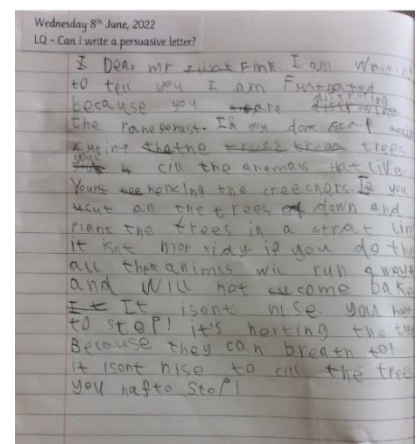 Wednesday 8th June, 2022
LQ - Can I write a persuasive letter?
Dear mr Fink I am writi
to tell you I am Frustrated
because you are
the raneforast. If you dont stop
cuting the trees
cill the anemals that live
Your hercing the creechers. If you
cut all the trees down and
plant the trees in a strat lin
it isnt mor tidy if you do the
all ther animls wil run a ways
and will not come bake
It isont nise. you haf
to stop! it's herting the
Because they can breath to!
it isont nise to cill the trees
you hafto stop!